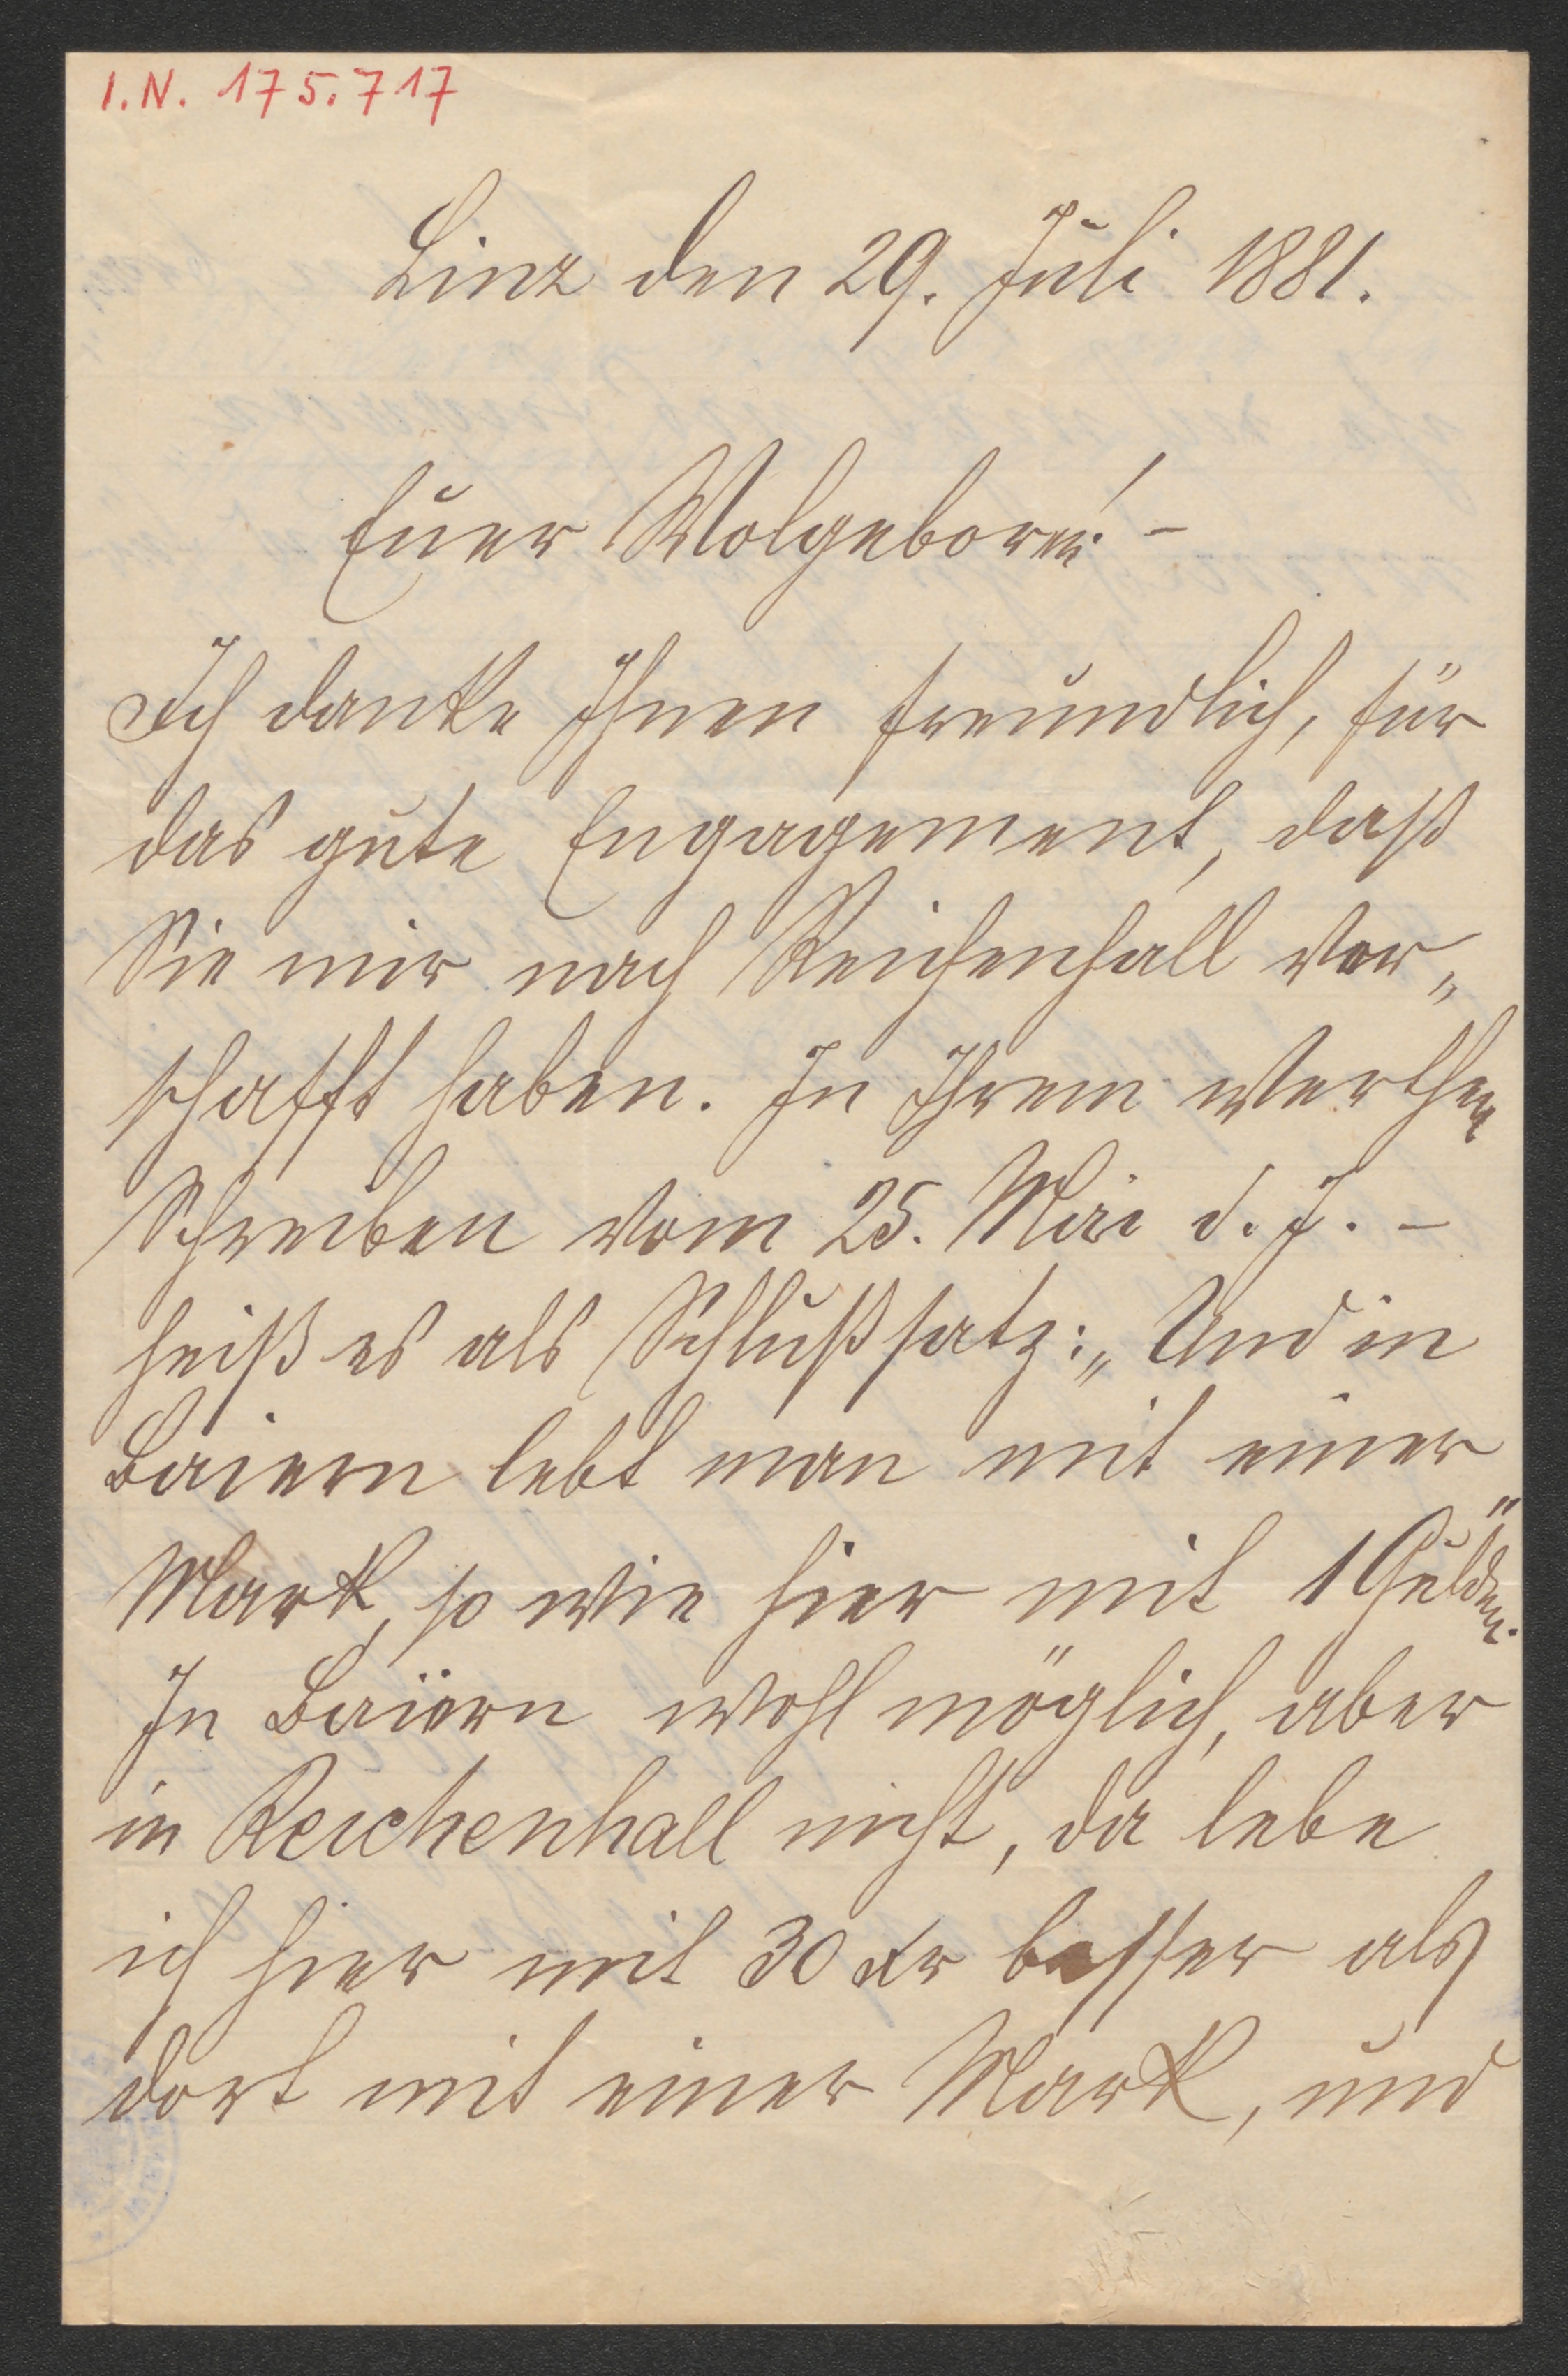 I.N. 175.717
Linz den 29. Juli 1881.
Euer Wolgeboren! –
Ich danke Ihnen freundlich, für
das gute Engagement, daß
Sie mir nach Reichenhall ver„
schafft haben. In Ihrem werthen
Schreiben vom 25. Mai d. J. –
heiß es als Schlußsatz: „Und in
Baiern lebt man mit einer
Mark, so wie hier mit 1 Gulden."
In Baiern wohl möglich, aber
in Reichenhall nicht, da lebe
ich hier mit 30 Kr besser als
dort mit einer Mark, und